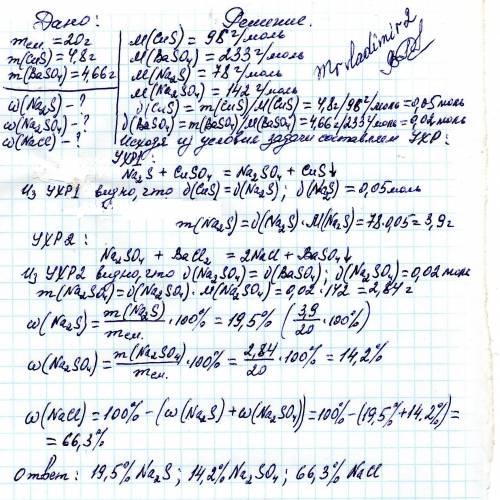 Дано:
mсм. = 20г
m(CuS) = 4,8г
m(BaSO4) = 4,66г
ω(Na2S) - ?
ω(Na2SO4) - ?
ω(NaCl) - ?
Решение.
M(CuS) = 98 г/моль
M(BaSO4) = 233 г/моль
M(Na2S) = 78 г/моль
M(Na2SO4) = 142 г/моль
ν(CuS) = m(CuS)/M(CuS) = 4,8г/98 г/моль = 0,05 моль
ν(BaSO4) = m(BaSO4)/M(BaSO4) = 4,66г/233 г/моль = 0,02 моль
Mr vladimir2
Исходя из условия задачи составляем УХР:
УХР1:
Na2S + CuSO4 = Na2SO4 + CuS↓
Из УХР1 видно, что ν(CuS) = ν(Na2S); ν(Na2S) = 0,05 моль
m(Na2S) = ν(Na2S)·M(Na2S) = 78·0,05 = 3,9г
УХР2:
Na2SO4 + BaCl2 = 2NaCl + BaSO4↓
Из УХР2 видно, что ν(Na2SO4) = ν(BaSO4); ν(Na2SO4) = 0,02 моль
m(Na2SO4) = ν(Na2SO4)·M(Na2SO4) = 0,02·142 = 2,84г
ω(Na2S) = m(Na2S)/mсм.·100% = 19,5% (3,9/20·100%)
ω(Na2SO4) = m(Na2SO4)/mсм.·100% = 2,84/20·100% = 14,2%
ω(NaCl) = 100% - (ω(Na2S) + ω(Na2SO4)) = 100% - (19,5% + 14,2%) =
= 66,3%
Ответ: 19,5% Na2S; 14,2% Na2SO4; 66,3% NaCl